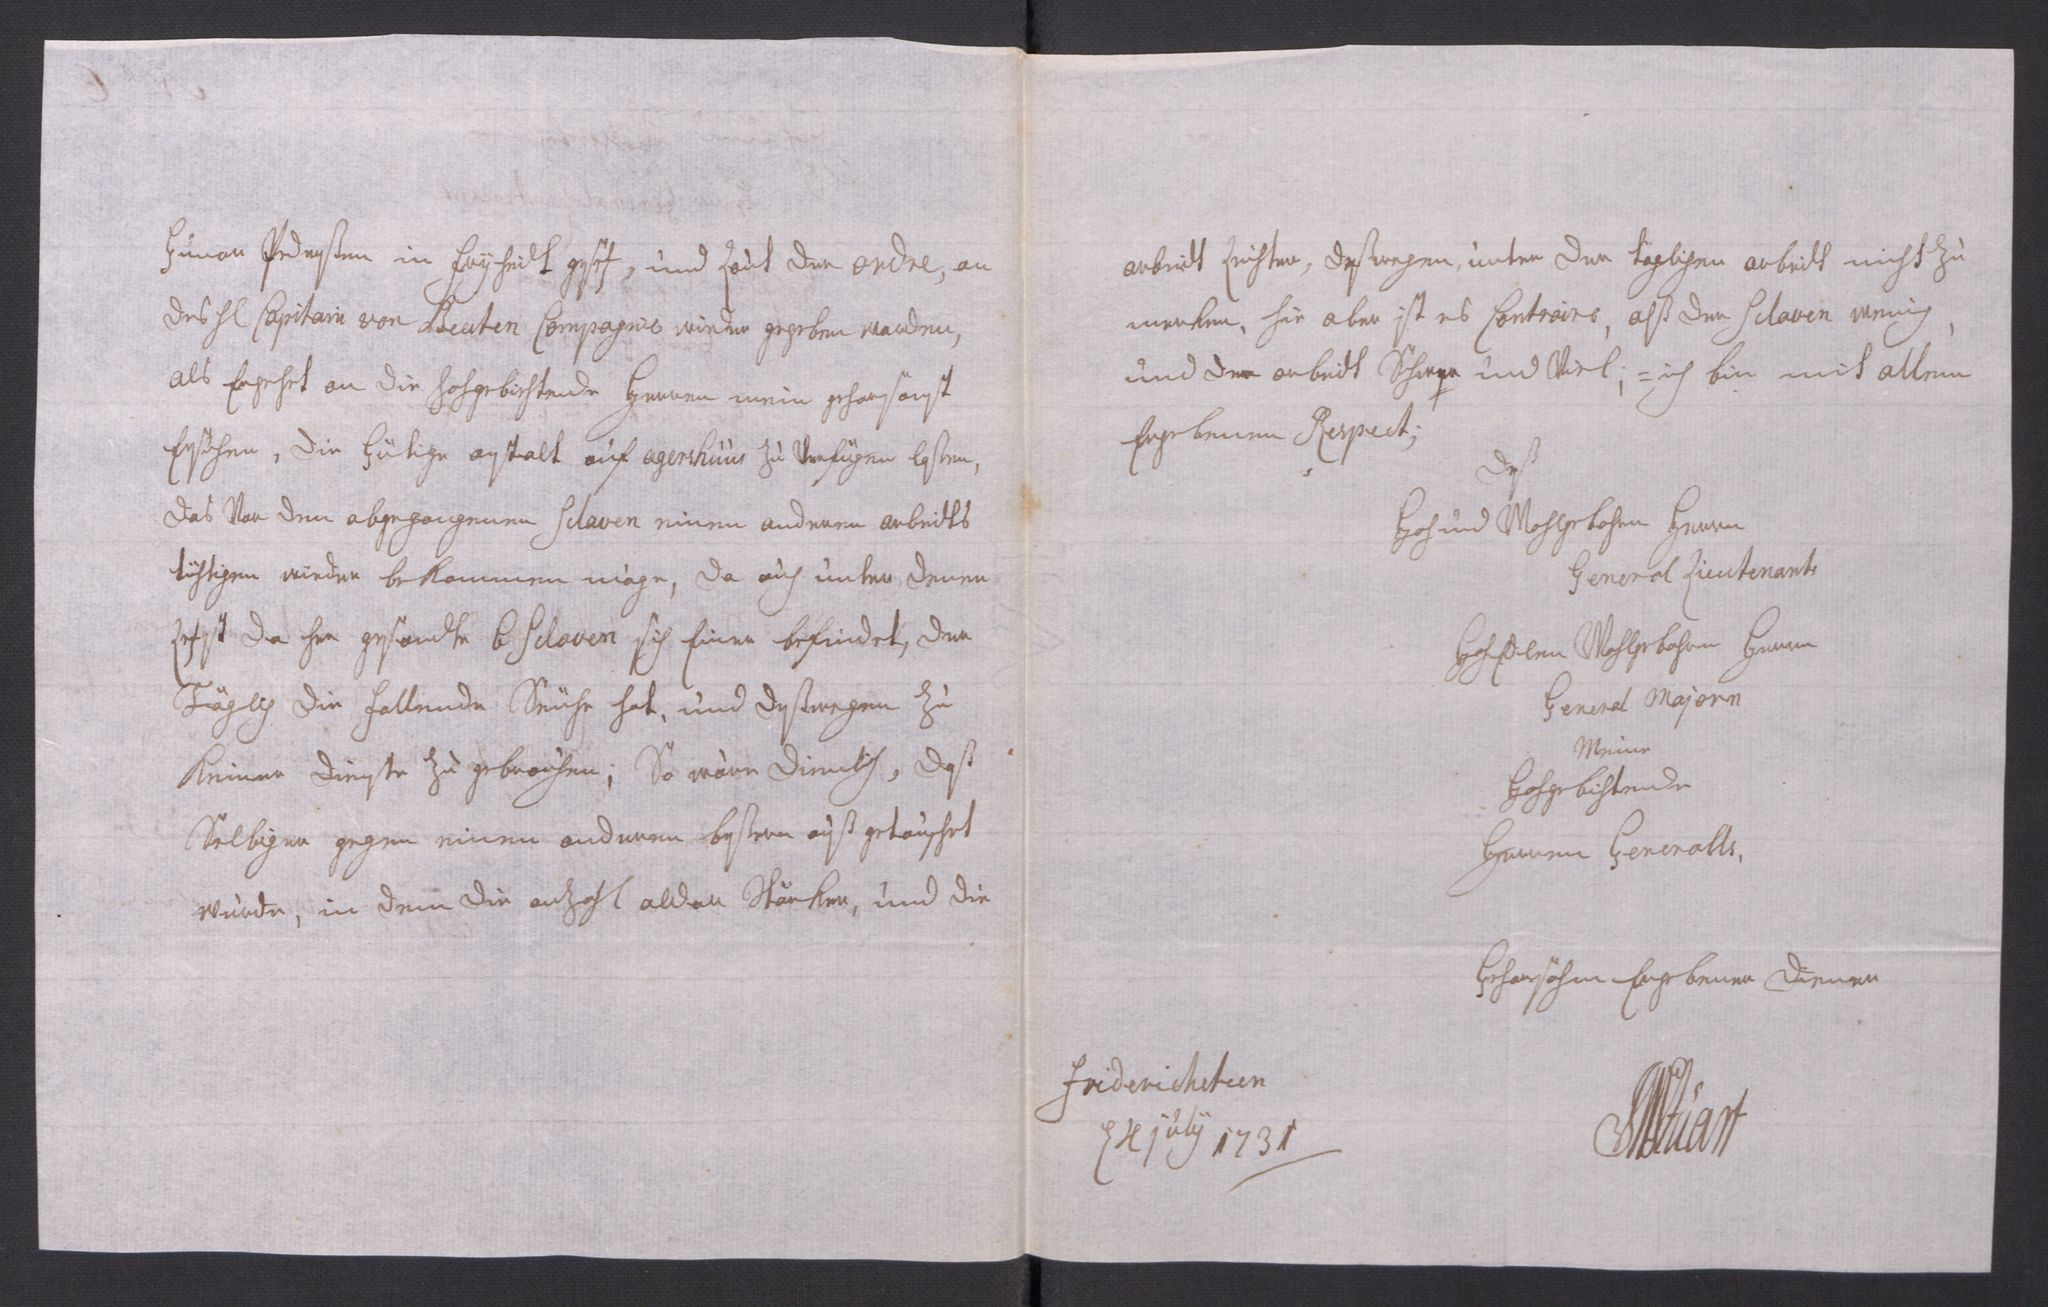 Gunar Pedersßen in freyheidt gesetzt, und laut der ordre, an
des Hl Capitain von Lieuten Compagnie wieder gegeben worden,
als ergehet an die Hochgebiehtende Herren mein gehorsamst
Ersuchen, die gütige anstalt auf agershuus zu verfügen lassen,
das vor den abgegangenen Sclaven einen anderen arbeidts
tüchtigen wieder bekommen möge, da auch unter denen
letzst da her gesandte 6 Sclaven sich einer befindet, der
Täglich die fallende Seuche hat, und deßwegen zu
Keiner dienste zu gebrauchen; So wäre dienlich, daß
Selbiger gegen einen anderen bessern auß getauschet
wurde, in dem die anzahl aldar Stärker, und die
arbeidt leichter, deßwegen unter der täglichen arbeidt nicht zu
mercken, hie aber ist es Contraire, alß der Sclaven wenig,
und der arbeidt Schwer und Viel; = ich bin mit allem
Ergebenen Respect;
Deß
Hoch und Wohlgebohrn Herrn
General Lieutenants
Hoch Edlen Wohlgebohrn Herrn
General Majorn
Meine
Hochgebiehtende
Herren Generalls,
Gehorsahm Ergebener Diener
Stuart
Friderichsteen
24 july 1731